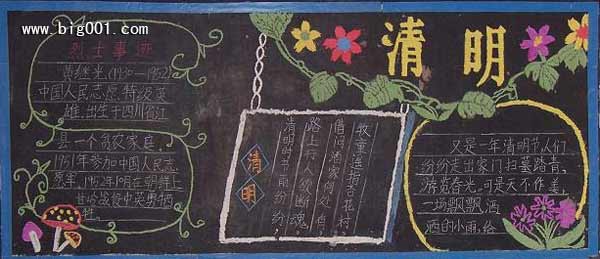 www.big001.com
清明
烈士事迹
黄继光(1930—1952)
中国人民志愿特级英
雄,出生于四川省江
县一个贫农家庭,
1951年参加中国人民志
愿军,1952年10月在朝鲜上
甘岭战役中英勇牺
牲。
清明
清明时节雨纷纷
路上行人欲断魂
借问酒家何处有
牧童遥指杏花村
又是一年清明节人们
纷纷走出家门扫墓踏青、
游览春光,可是天不作美,
一场飘飘洒
洒的小雨,给